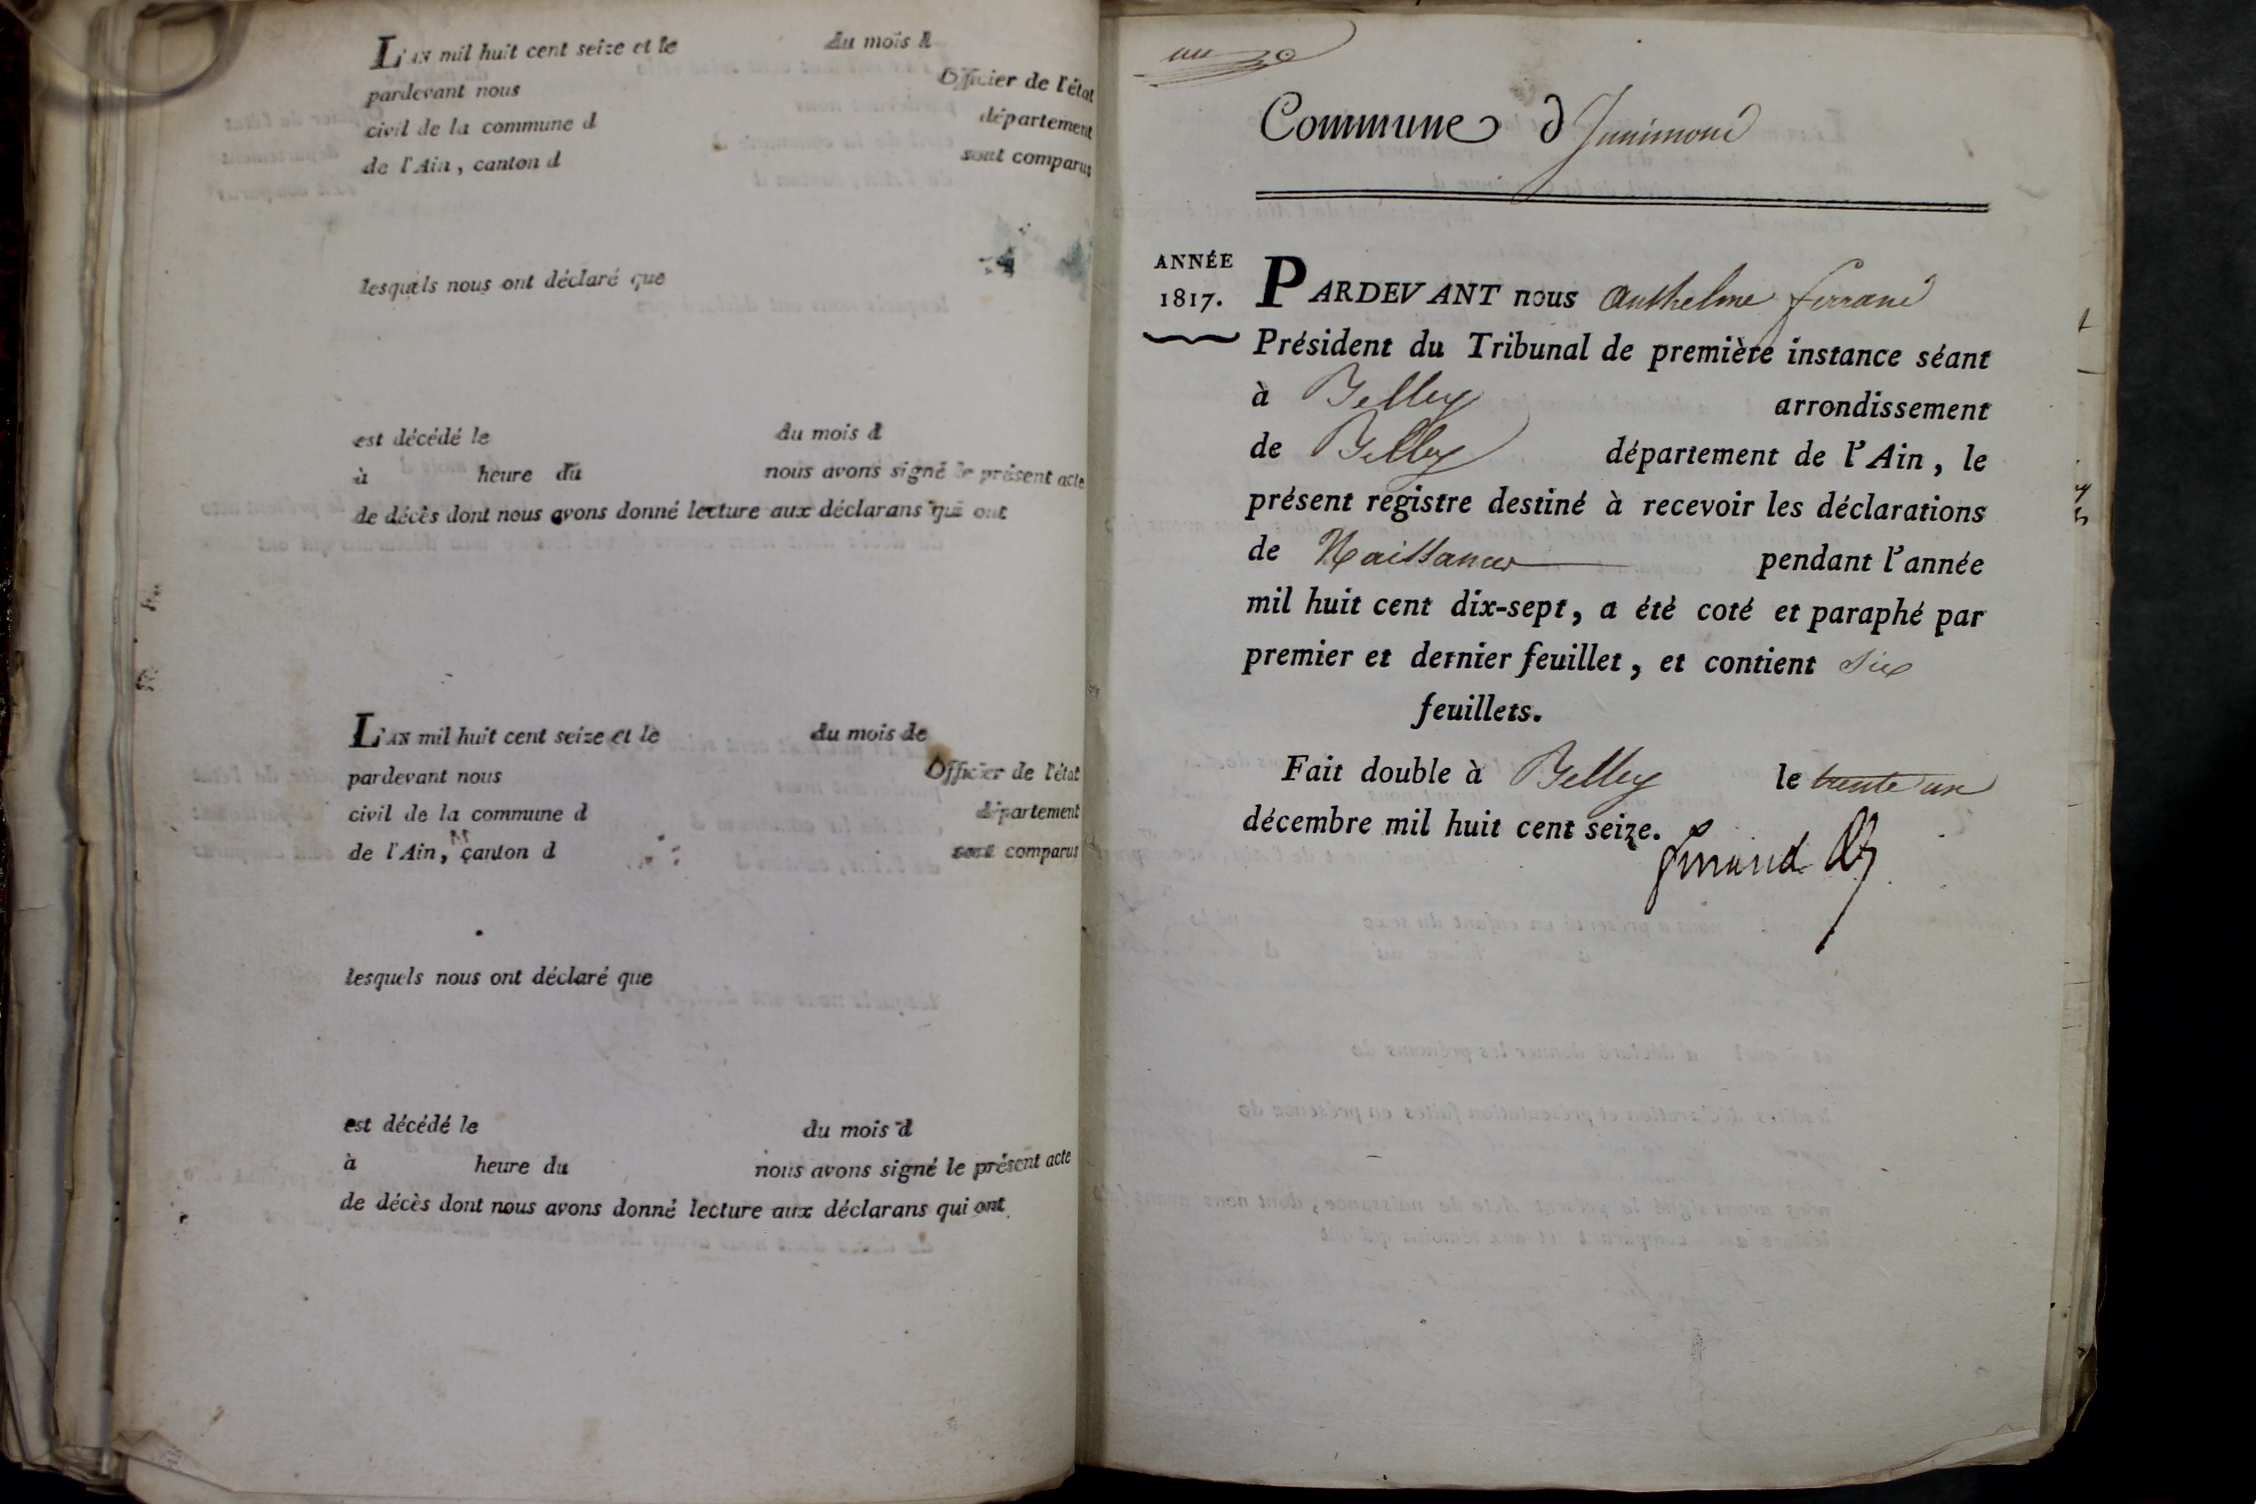 L'AN mil huit cent seize et le du mois d
pardevant nous Officier de l'état
civil de la commune d département
de l'Ain, canton d sont comparus
lesquels nous ont déclaré que
est décédé le du mois d
à heure du nous avons signé le présent acte
de décès dont nous avons donné lecture aux déclarans qui ont
L'AN mil huit cent seize et le du mois de
pardevant nous Officier de l'état
civil de la commune d département
de l'Ain, canton d sont comparus
lesquels nous ont déclaré que
est décédé le du mois d
à heure du nous avons signé le présent acte
de décès dont nous avons donné lecture aux déclarans qui ont
un
Commune d
ANNÉE
1817.
PARDEVANT nous Anthelme ferrand
Président du Tribunal de première instance séant
à Belley arrondissement
de Belley département de l'Ain, le
présent registre destiné à recevoir les déclarations
de Naissances pendant l'année
mil huit cent dix-sept, a été coté et paraphé par
premier et dernier feuillet, et contient six
feuillets.
Fait double à Belley le trente un
décembre mil huit cent seize.
ferrand